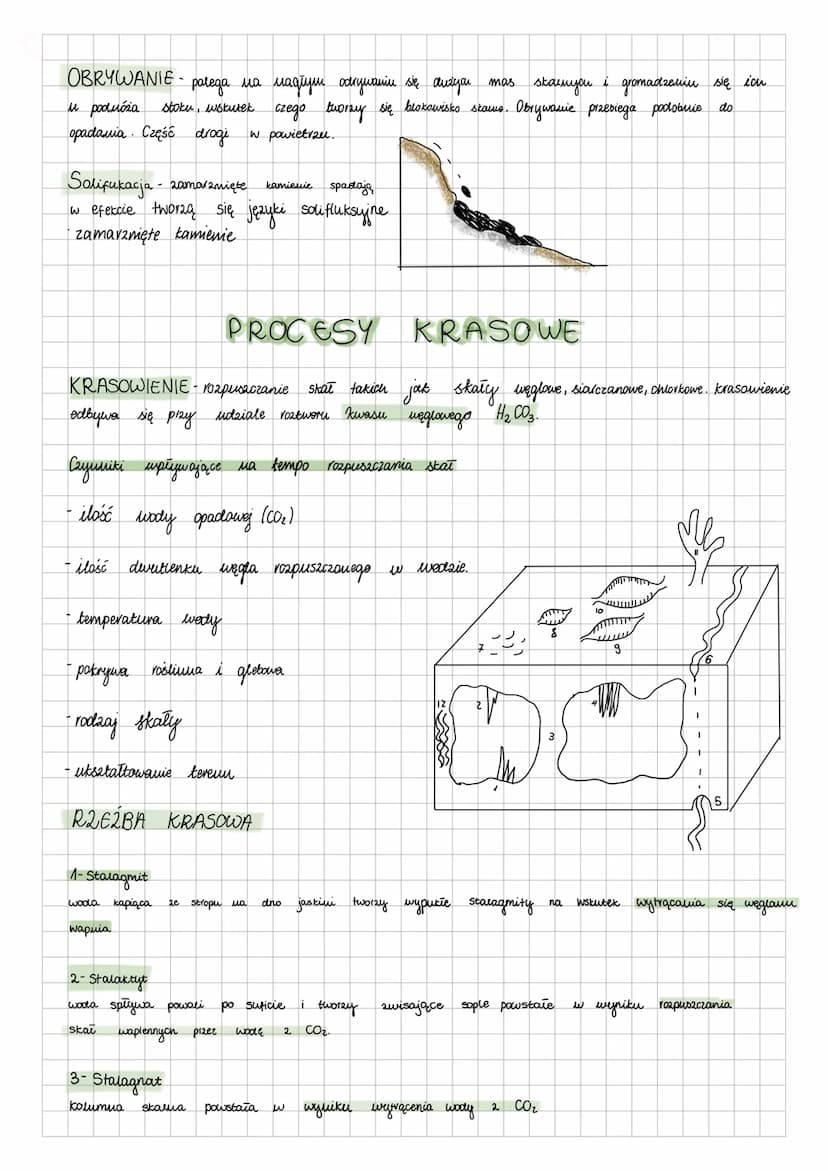 OBRYWANIE - polega na nagłym odrywaniu się dużych mas skalnych i gromadzeniu się ich
u podnóża stoku, wskutek czego tworzy się blokowisko skalne. Obrywanie przebiega podobnie do
opadania. Część drogi w powietrzu.
Solifukacja - zamarznięte kamienie spadają
w efekcie tworzą się języki soliflukcyjne
zamarznięte kamienie
PROCESY KRASOWE
KRASOWIENIE - rozpuszczanie skał takich jak skały węglowe, siarczanowe, chlorkowe. krasowienie
odbywa się przy udziale roztworu kwasu węglowego H₂CO₃.
Czynniki wpływające na tempo rozpuszczania skał
- ilość wody opadowej (CO₂)
- ilość dwutlenku węgla rozpuszczonego w wodzie.
- temperatura wody
- pokrywa roślinna i glebowa
- rodzaj skały
- ukształtowanie terenu
11
10
8
9
7
6
12
2
4
3
1
5
RZEŹBA KRASOWA
1- Stalagmit
woda kapiąca ze stropu na dno jaskini tworzy wypukłe stalagmity na wskutek wytrącania się węglanu
wapnia
2- Stalaktyt
woda spływa powoli po suficie i tworzy zwisające sople powstałe w wyniku rozpuszczania
skał wapiennych przez wodę z CO₂.
3- Stalagnat
kolumna skalna powstała w wyniku wytrącenia wody z CO₂